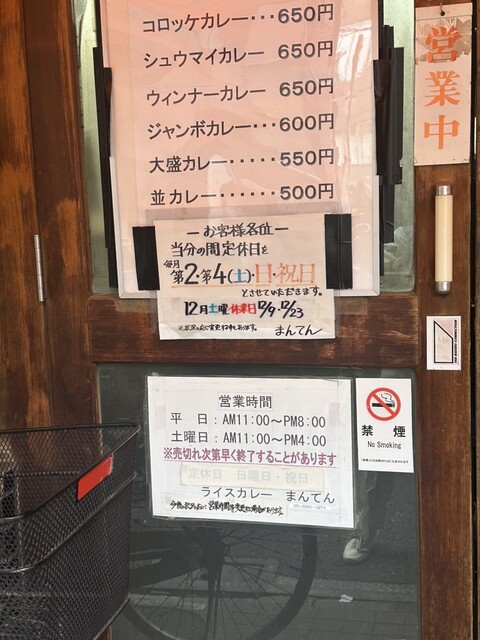 コロッケカレー・・・650円
シュウマイカレー 650円
ウィンナーカレー 650円
ジャンボカレー・・・600円
大盛カレー・・・・・550円
並カレー・・・・・500円
営業中
ーお客様各位ー
当分の間定休日を
毎月
第2・第4(土)・日・祝日
とさせていただきます。
12月土曜休業日12/9・12/23
まんてん
営業時間
平 日:AM11:00～PM8:00
土曜日:AM11:00～PM4:00
※売切れ次第早く終了することがあります
定休日 日曜日・祝日
ライスカレー まんてん
禁煙
No Smoking